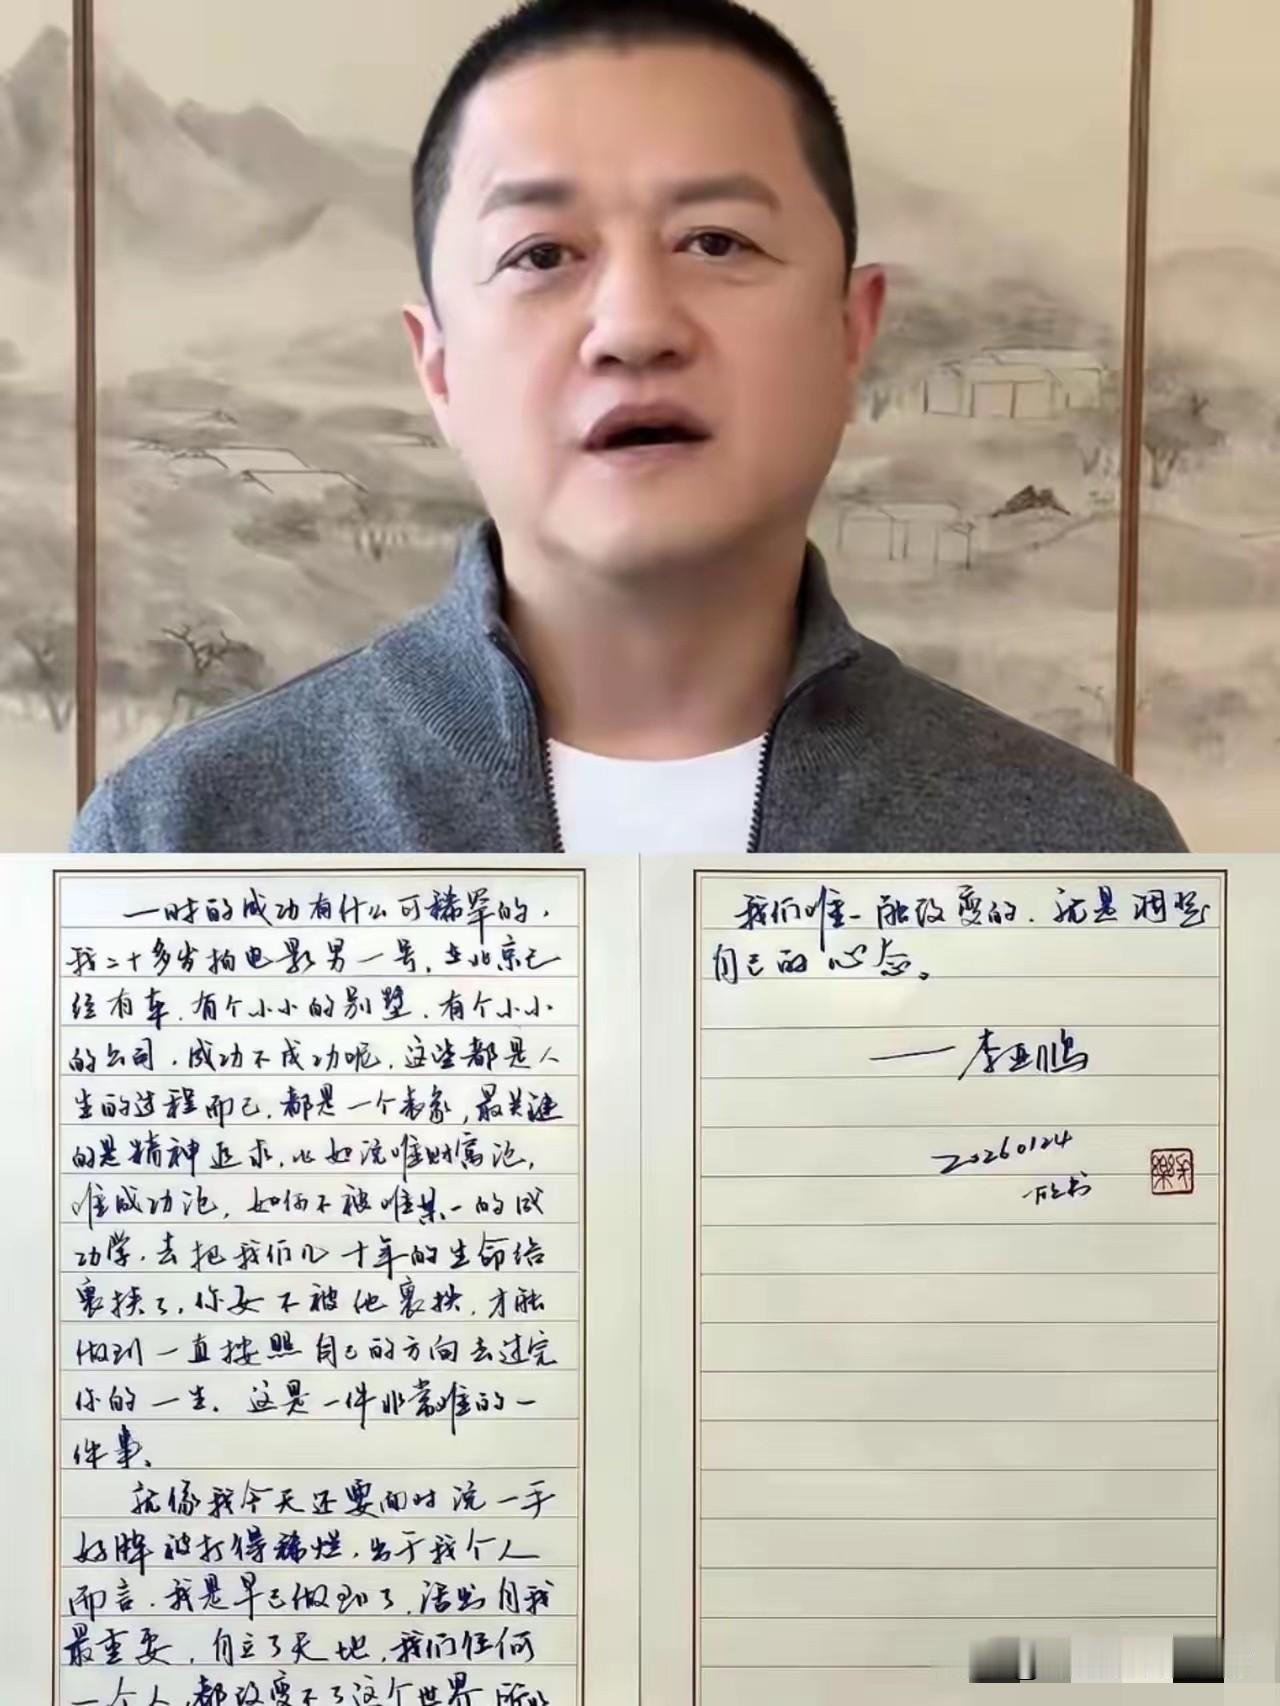 一时的成功有什么可稀罕的，
我二十多岁拍电影男一号，在北京已
经有车，有个小小的别墅，有个小小
的公司，成功不成功呢，这些都是人
生的过程而已，都是一个表象，最关键
的是精神追求，比如说唯财富论，
唯成功论，如何不被唯某一的成
功学，去把我们几十年的生命给
裹挟了，你要不被他裹挟，才能
做到一直按照自己的方向去过完
你的一生，这是一件非常难的一
件事。
就像我今天还要面对说一手
好牌被打得稀烂，出于我个人
而言，我是早已做到了，活出自我
最重要，自立了天地，我们任何
一个人，都改变不了这个世界，所以
我们唯一能改变的，就是调整
自己的心念。
——李亚鹏
20260124